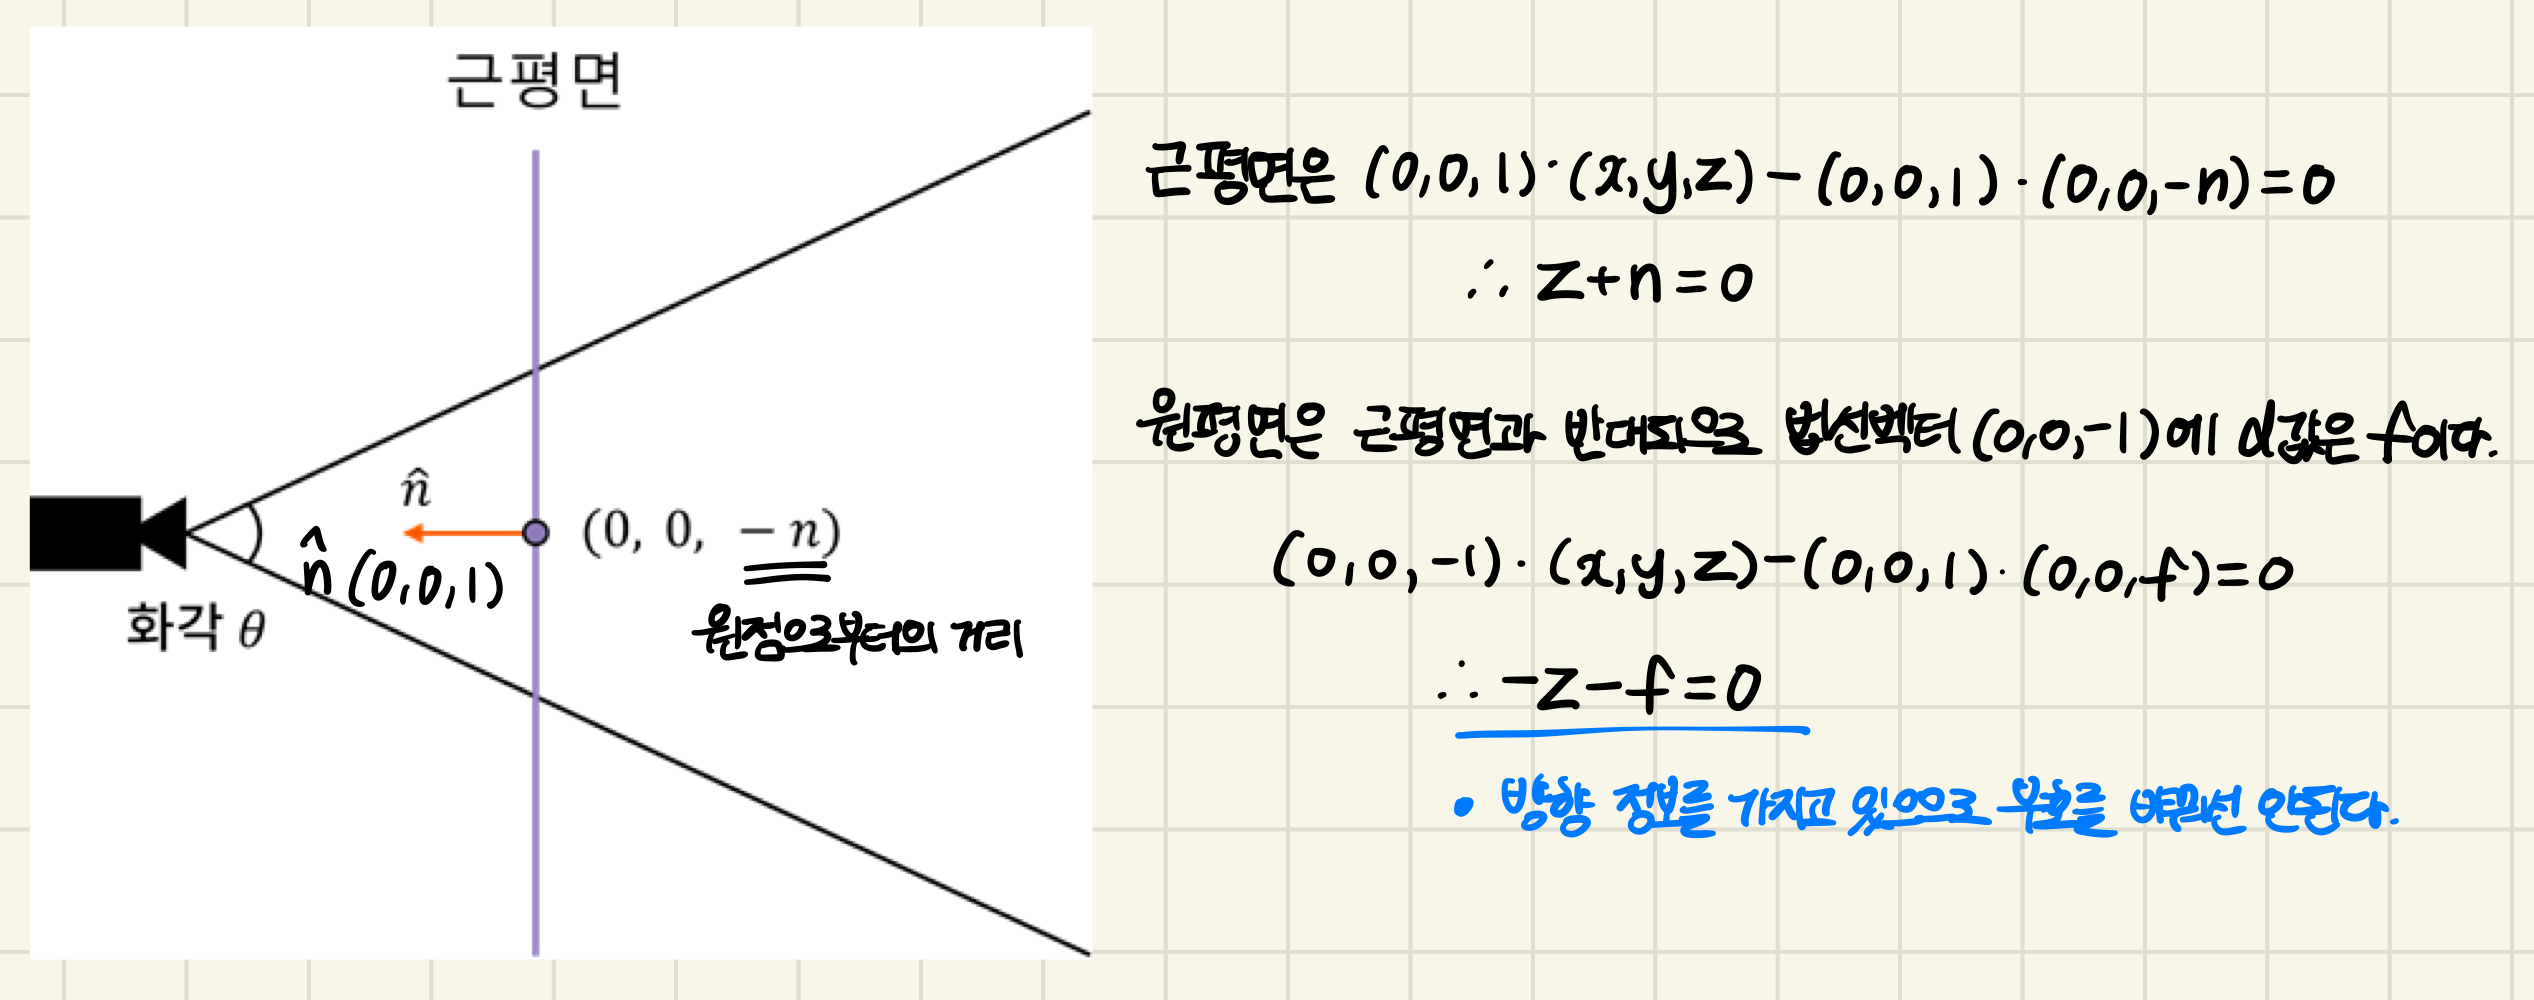 근평면
n̂
(0, 0, − n)
n̂ (0,0,1)
화각 θ
원점으로부터의 거리
근평면은 (0,0,1)·(x,y,z)−(0,0,1)·(0,0,−n)=0
∴ z+n=0
원평면은 근평면과 반대되므로 법선벡터(0,0,−1)에 d값은 f이다.
(0,0,−1)·(x,y,z)−(0,0,1)·(0,0,f)=0
∴ −z−f=0
• 방향 정보를 가지고 있으므로 부호를 바꿔선 안된다.